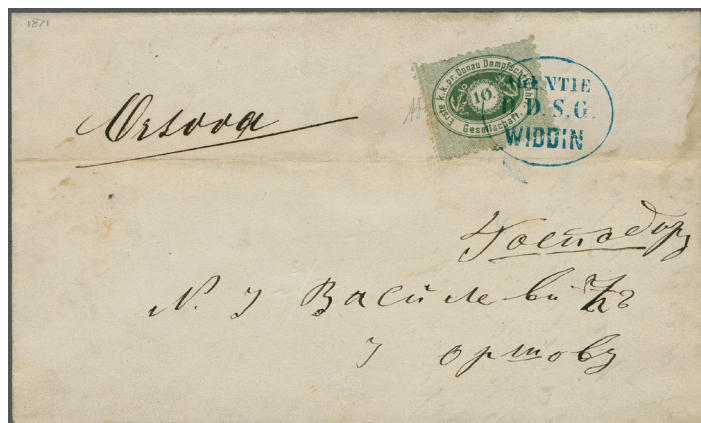 1871
Orsova
Erste k.k.pr. Donau Dampfschiffahrt
Gesellschaft.
10.
AGENTIE
D.D.S.G.
WIDDIN
Господару
N. І Василевићъ
У оршову